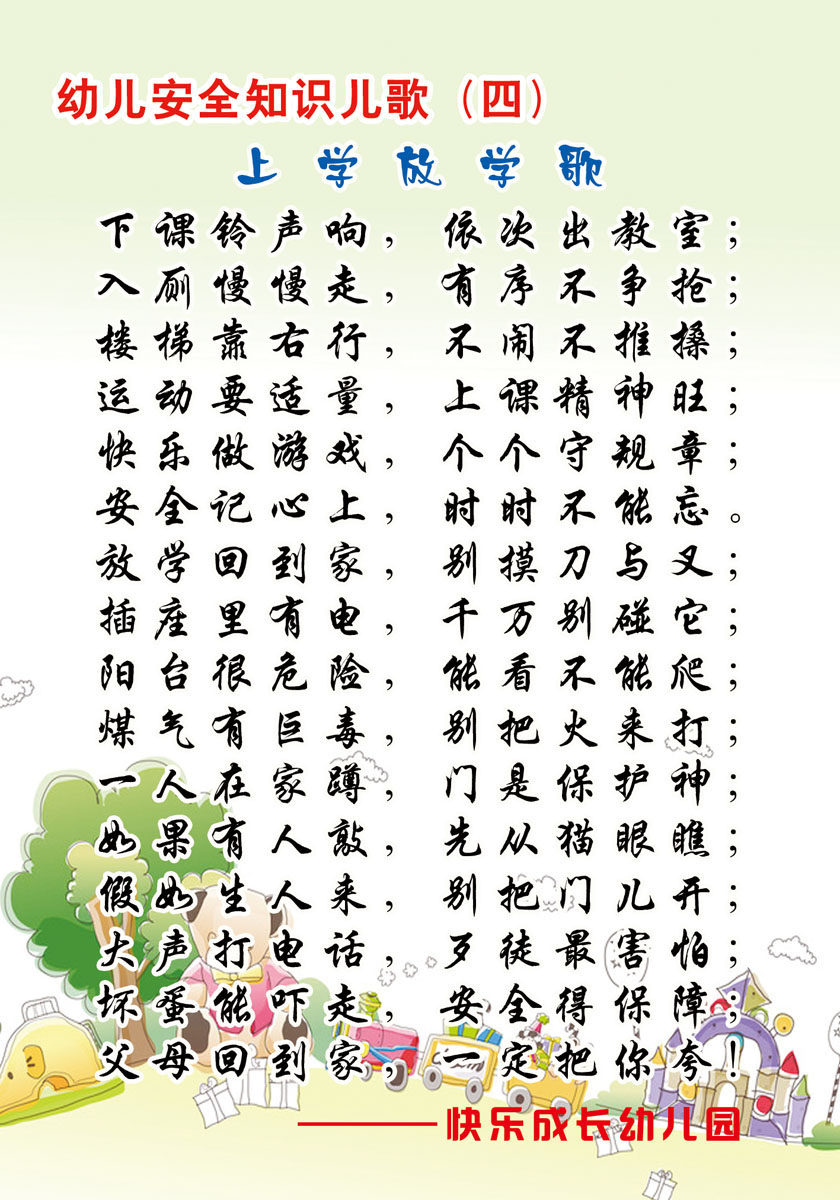 幼儿安全知识儿歌（四）
上学放学歌
下课铃声响，依次出教室；
入厕慢慢走，有序不争抢；
楼梯靠右行，不闹不推搡；
运动要适量，上课精神旺；
快乐做游戏，个个守规章；
安全记心上，时时不能忘。
放学回到家，别摸刀与叉；
插座里有电，千万别碰它；
阳台很危险，能看不能爬；
煤气有巨毒，别把火来打；
一人在家蹲，门是保护神；
如果有人敲，先从猫眼瞧；
假如生人来，别把门儿开；
大声打电话，歹徒最害怕；
坏蛋能吓走，安全得保障；
父母回到家，一定把你夸！
————快乐成长幼儿园